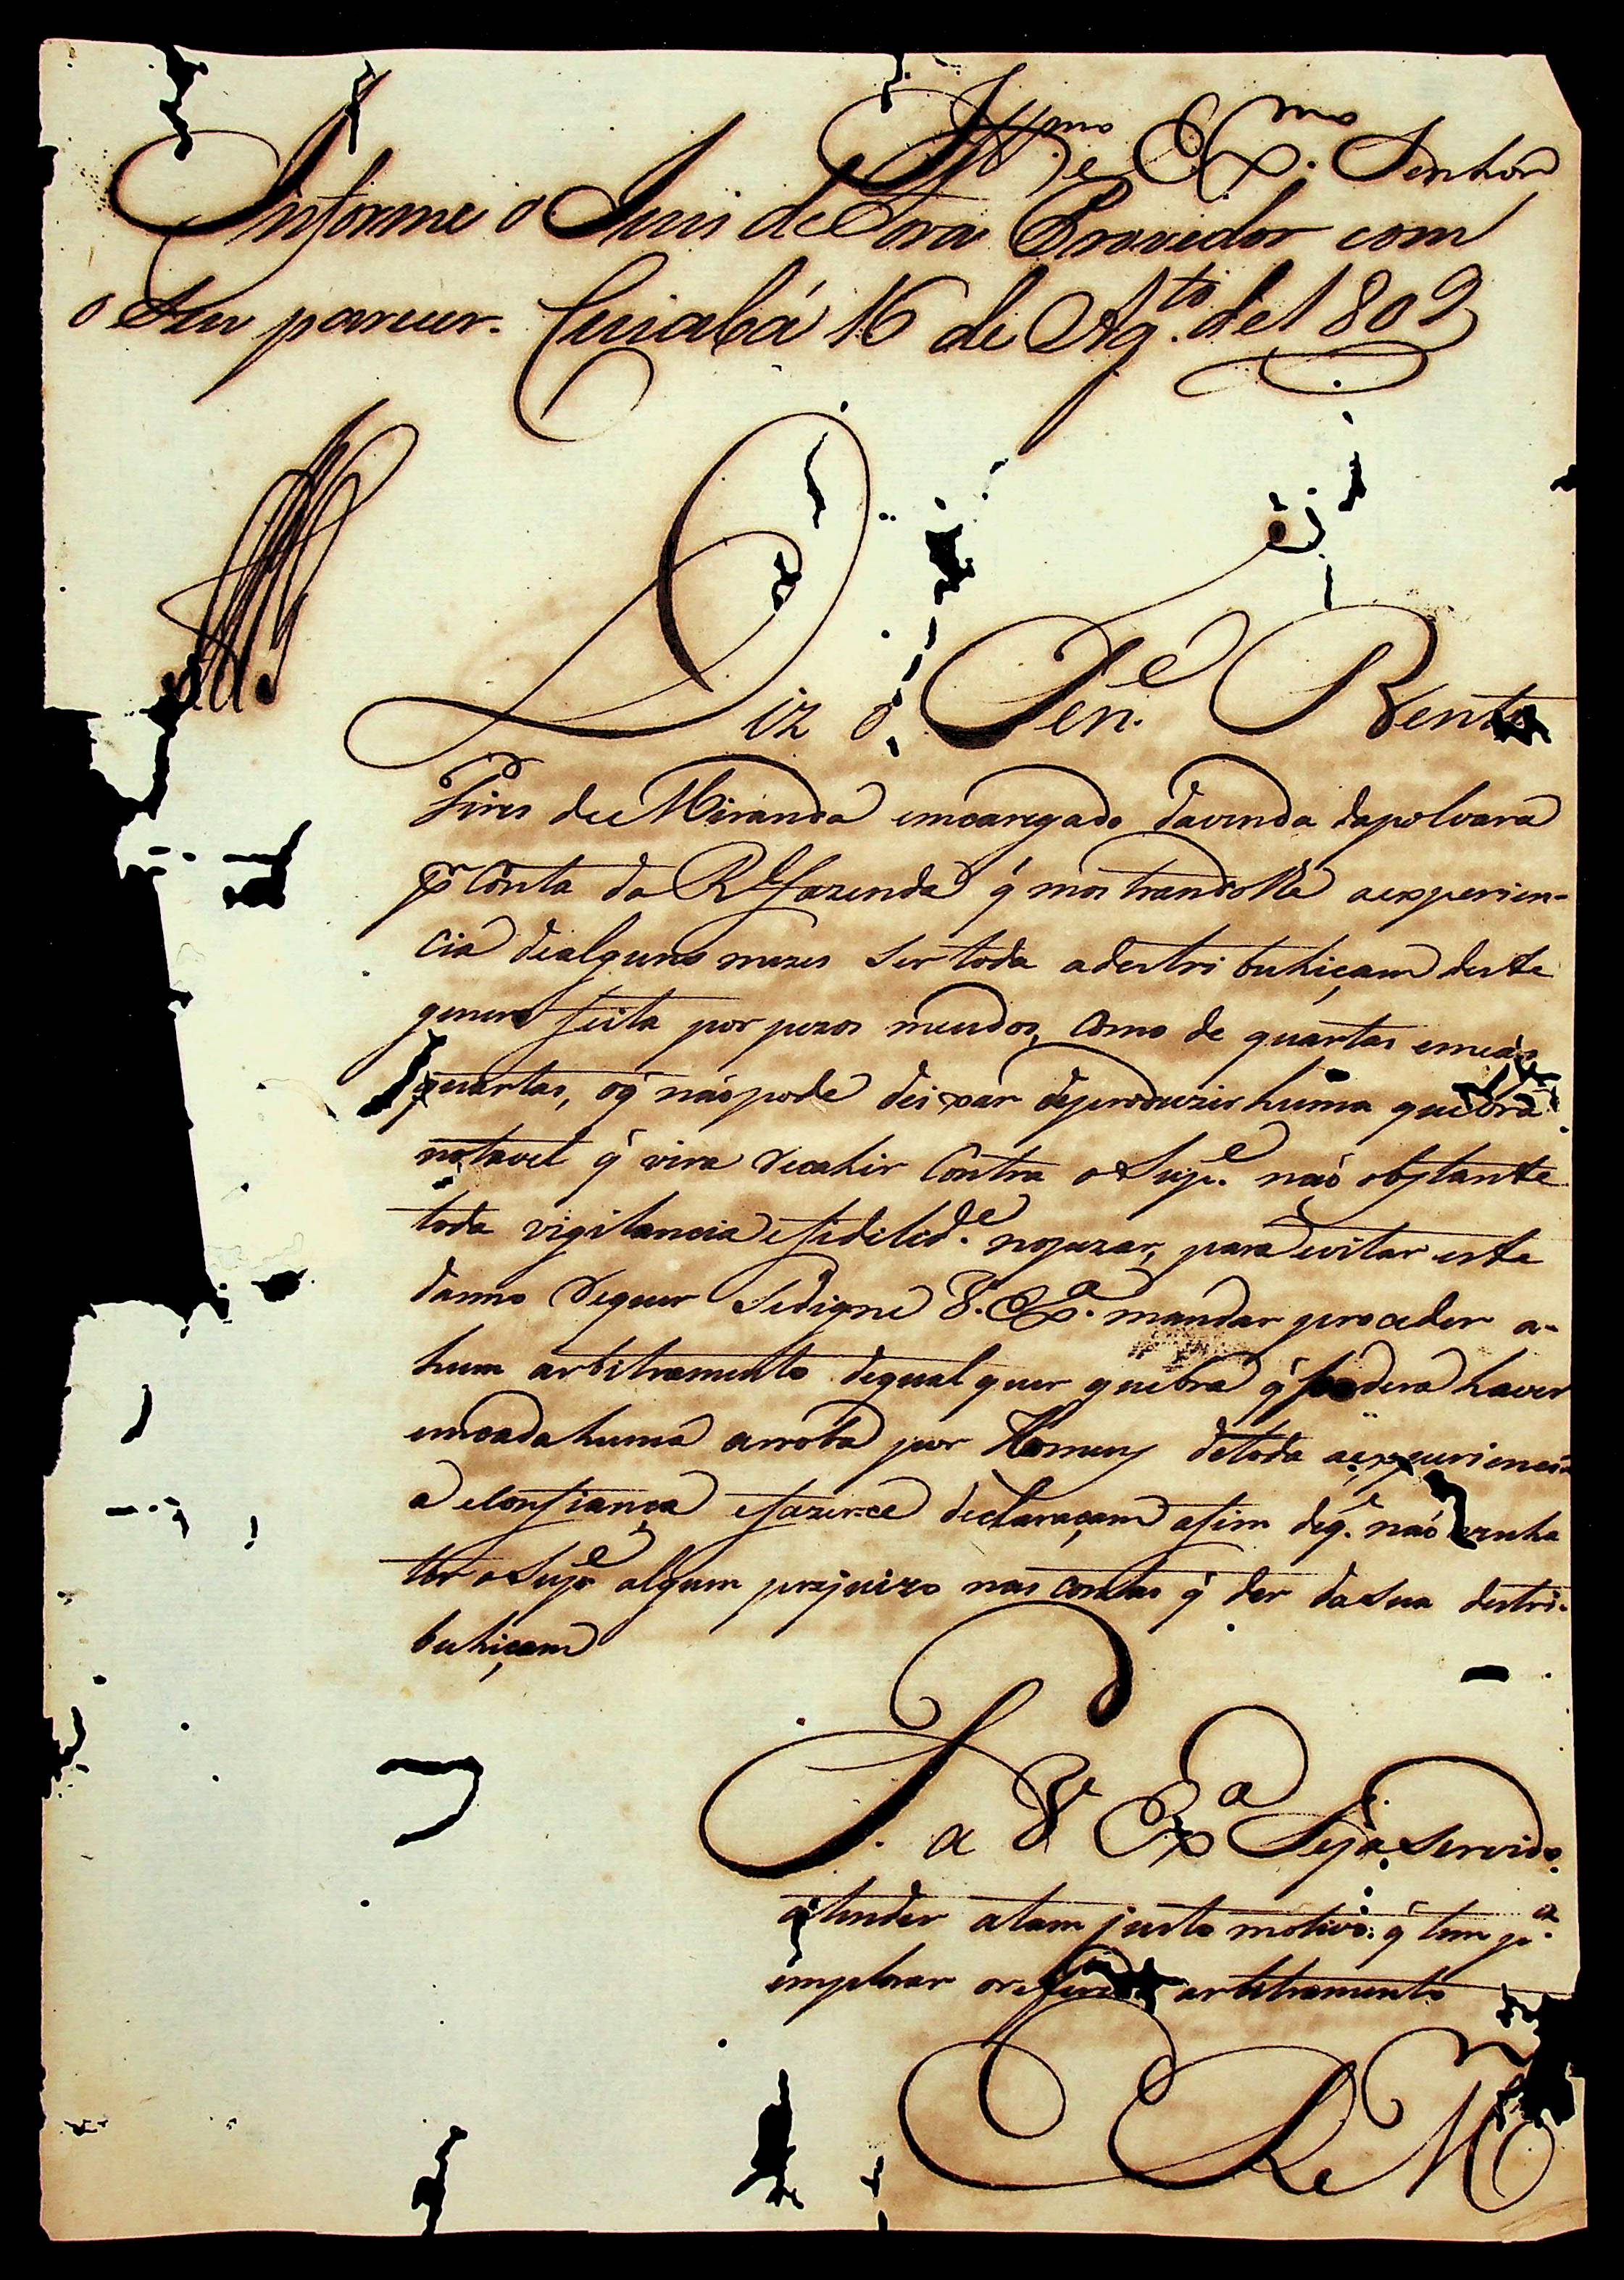 Ill.mo e Ex.mo Senhor
Informe o Juis de Fora Provedor com
o seu parecer. Cuiabá 16 de Ag.to de 1809
Diz o Ten.e Bento
Pires de Miranda emcaregado davenda dapolvara
pr Conta da Rl fazenda q' mostrandolhe aexperien-
cia dealguns mezes ser toda adestribuhiçam deste
genero feita por pezos meudos, como de quartas emeas
quartas, oq' náo pode deixar deproduzir huma quebra
notavel q' vira recahir Contra o Sup.e náo obstante
toda vigilancia efidelid.e nopezar, para evitar este
danno requer Sedigne V. Ex.a mandar proceder a-
hum arbitramento dequalquer quebra q' podera haver
emcadahuma arroba por Homens detoda aexperiencia
a econfiança efazerce declaraçam afim deq.e náo venha
ter o Sup.e algum prejuizo nas contas q' der dasua destri-
buhiçam
P. a V Ex.a Seja servido
atender atam justo motivo q' tem p.a
emplorar oreferido arbitramento
E R M